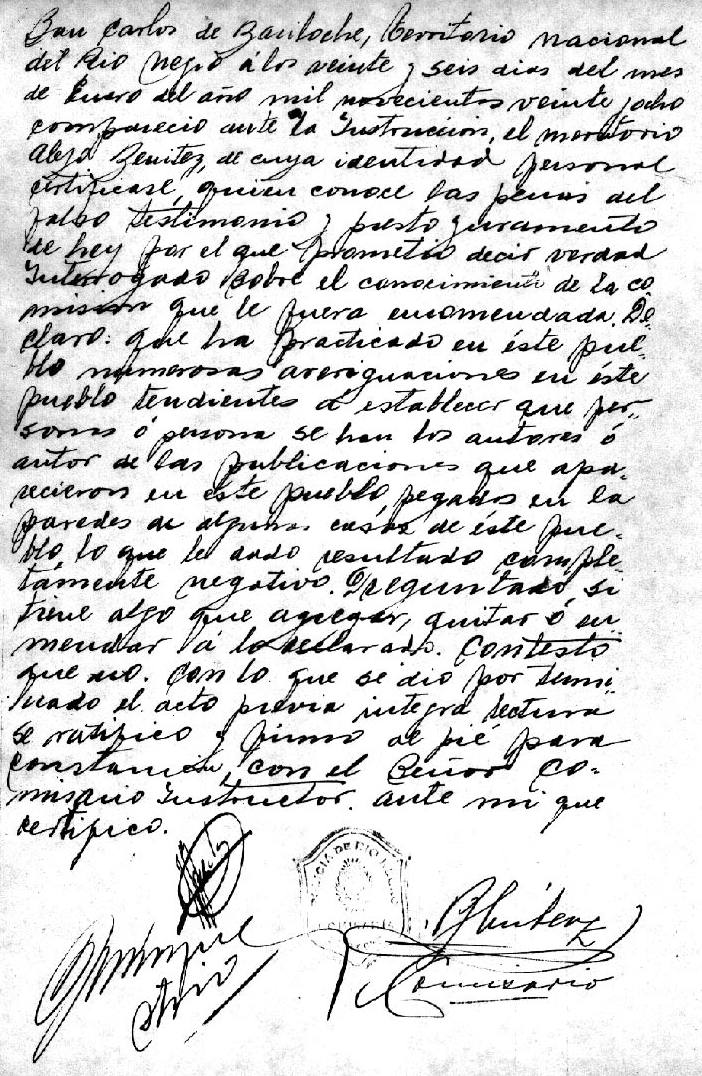 San Carlos de Bariloche, territorio nacional
del Rio Negro á los veinte y seis dias del mes
de Enero del año mil novecientos veinte y ocho
comparecio ante la Instruccion, el meritorio
Alejo Benitez, de cuya identidad personal
certificase, quien conoce las penas del
falso testimonio y presto juramento
de ley por el que prometio decir verdad
Interrogado sobre el conocimiento de la co
mision que le fuera encomendada. De-
claro: que ha practicado en éste pue-
blo numerosas averiguaciones en éste
pueblo tendientes á establecer que per-
sonas ó persona se han los autores ó
autor de las publicaciones que apa-
recieron en este pueblo, pegados en la
paredes de algunas casas de éste pue-
blo lo que le dado resultado comple-
támente negativo. Preguntado, si
tiene algo que agregar, quitar ó en
mendar á lo declarado. Contestó
que no. Con lo que se dio por termi-
nado el acto previa integra lectura
se ratifico y firmo al pié para
constancia, con el Señor Co-
misario Instructor. ante mi que
certifico.
POLICIA DE RIO NEGRO
Comisario